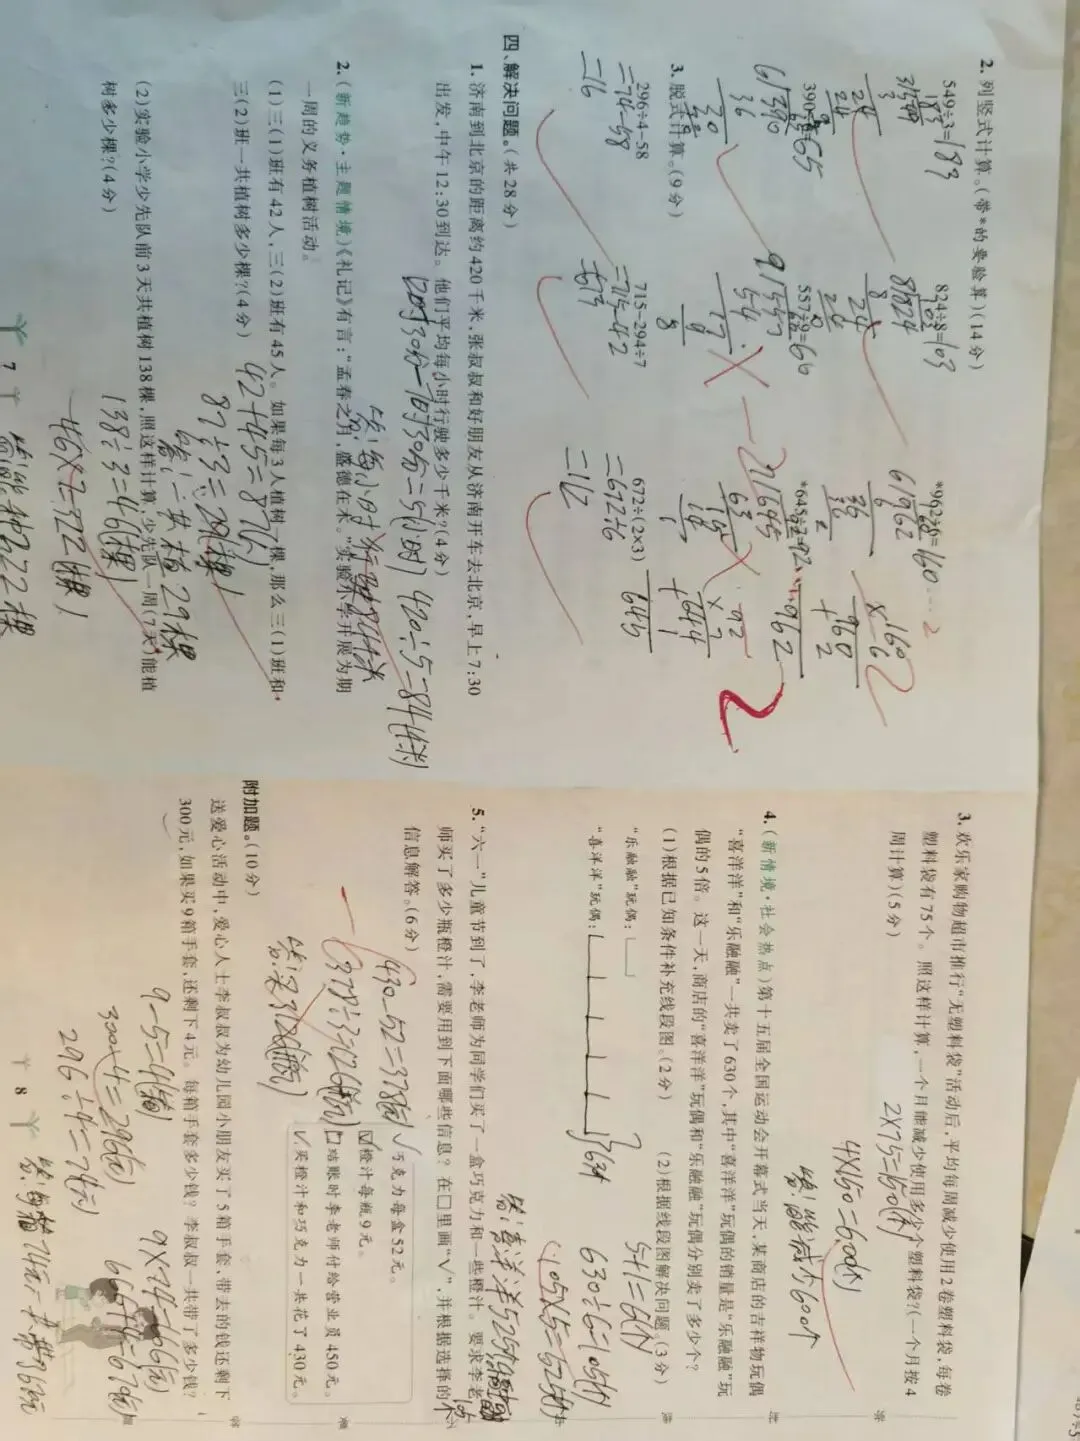 2. 列竖式计算。(带*的要验算)(14分)
549÷3=183
824÷8=103
*962÷6=160……2
390÷6=65
557÷9=
*645÷7=92
3. 脱式计算。(9分)
296÷4-58
715-294÷7
672÷(2×3)
=74-58
=715-42
=672÷6
=16
=673
=112
四、解决问题。(共28分)
1. 济南到北京的距离约420千米,张叔叔和好朋友从济南开车去北京,早上7:30
出发,中午12:30到达。他们平均每小时行驶多少千米?(4分)
12时30分-7时30分=5(小时) 420÷5=84(千米)
2. (新趋势·主题情境)《礼记》有言:“孟春之月,盛德在木。”实验小学开展为期
一周的义务植树活动。
(1)三(1)班有42人,三(2)班有45人。如果每3人植树1棵,那么三(1)班和
三(2)班一共植树多少棵?(4分)
42+45=87(人)
87÷3=29(棵)
答:一共植29棵
(2)实验小学少先队前3天共植树138棵,照这样计算,少先队一周(7天)能植
树多少棵?(4分)
138÷3=46(棵)
46×7=322(棵)
7
3. 欢乐家购物超市推行“无塑料袋”活动后,平均每周减少使用2卷塑料袋,每卷
塑料袋有75个。照这样计算,一个月能减少使用多少个塑料袋?(一个月按4
周计算)(5分)
2×75=150(个)
4×150=600(个)
4. (新情境·社会热点)第十五届全国运动会开幕式当天,某商店的吉祥物玩偶
“喜洋洋”和“乐融融”一共卖了630个,其中“喜洋洋”玩偶的销量是“乐融融”玩
偶的5倍。这一天,商店的“喜洋洋”玩偶和“乐融融”玩偶分别卖了多少个?
(1)根据已知条件补充线段图。(2分)
(2)根据线段图解决问题。(3分)
“乐融融”玩偶:
“喜洋洋”玩偶:
5+1=6(个)
630÷6=105(个)
105×5=525(个)
5. “六一”儿童节到了,李老师为同学们买了一盒巧克力和一些橙汁。要求李老
师买了多少瓶橙汁,需要用到下面哪些信息?在□里画“√”,并根据选择的
信息解答。(6分)
√巧克力每盒52元。
☑橙汁每瓶9元。
□结账时李老师付给营业员450元。
√买橙汁和巧克力一共花了430元。
430-52=378(元)
附加题。(10分)
送爱心活动中,爱心人士李叔叔为幼儿园小朋友买了5箱手套,带去的钱还剩下
300元,如果买9箱手套,还剩下4元。每箱手套多少钱?李叔叔一共带了多少钱?
9-5=4(箱)
300-4=296(元)
296÷4=74(元)
9×74=666(元)
8